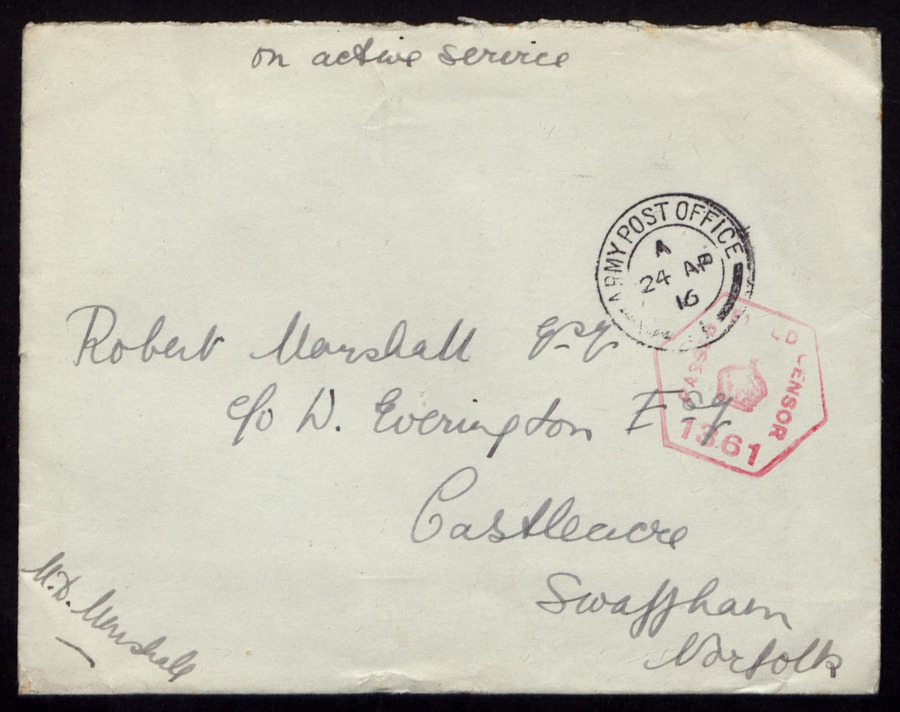 on active service
ARMY POST OFFICE
A
24 AP
16
Robert Marshall Esq.
c/o W. Everington Esq
PASSED FIELD CENSOR
1361
Castleacre
Swaffham
Norfolk
W.D. Marshall